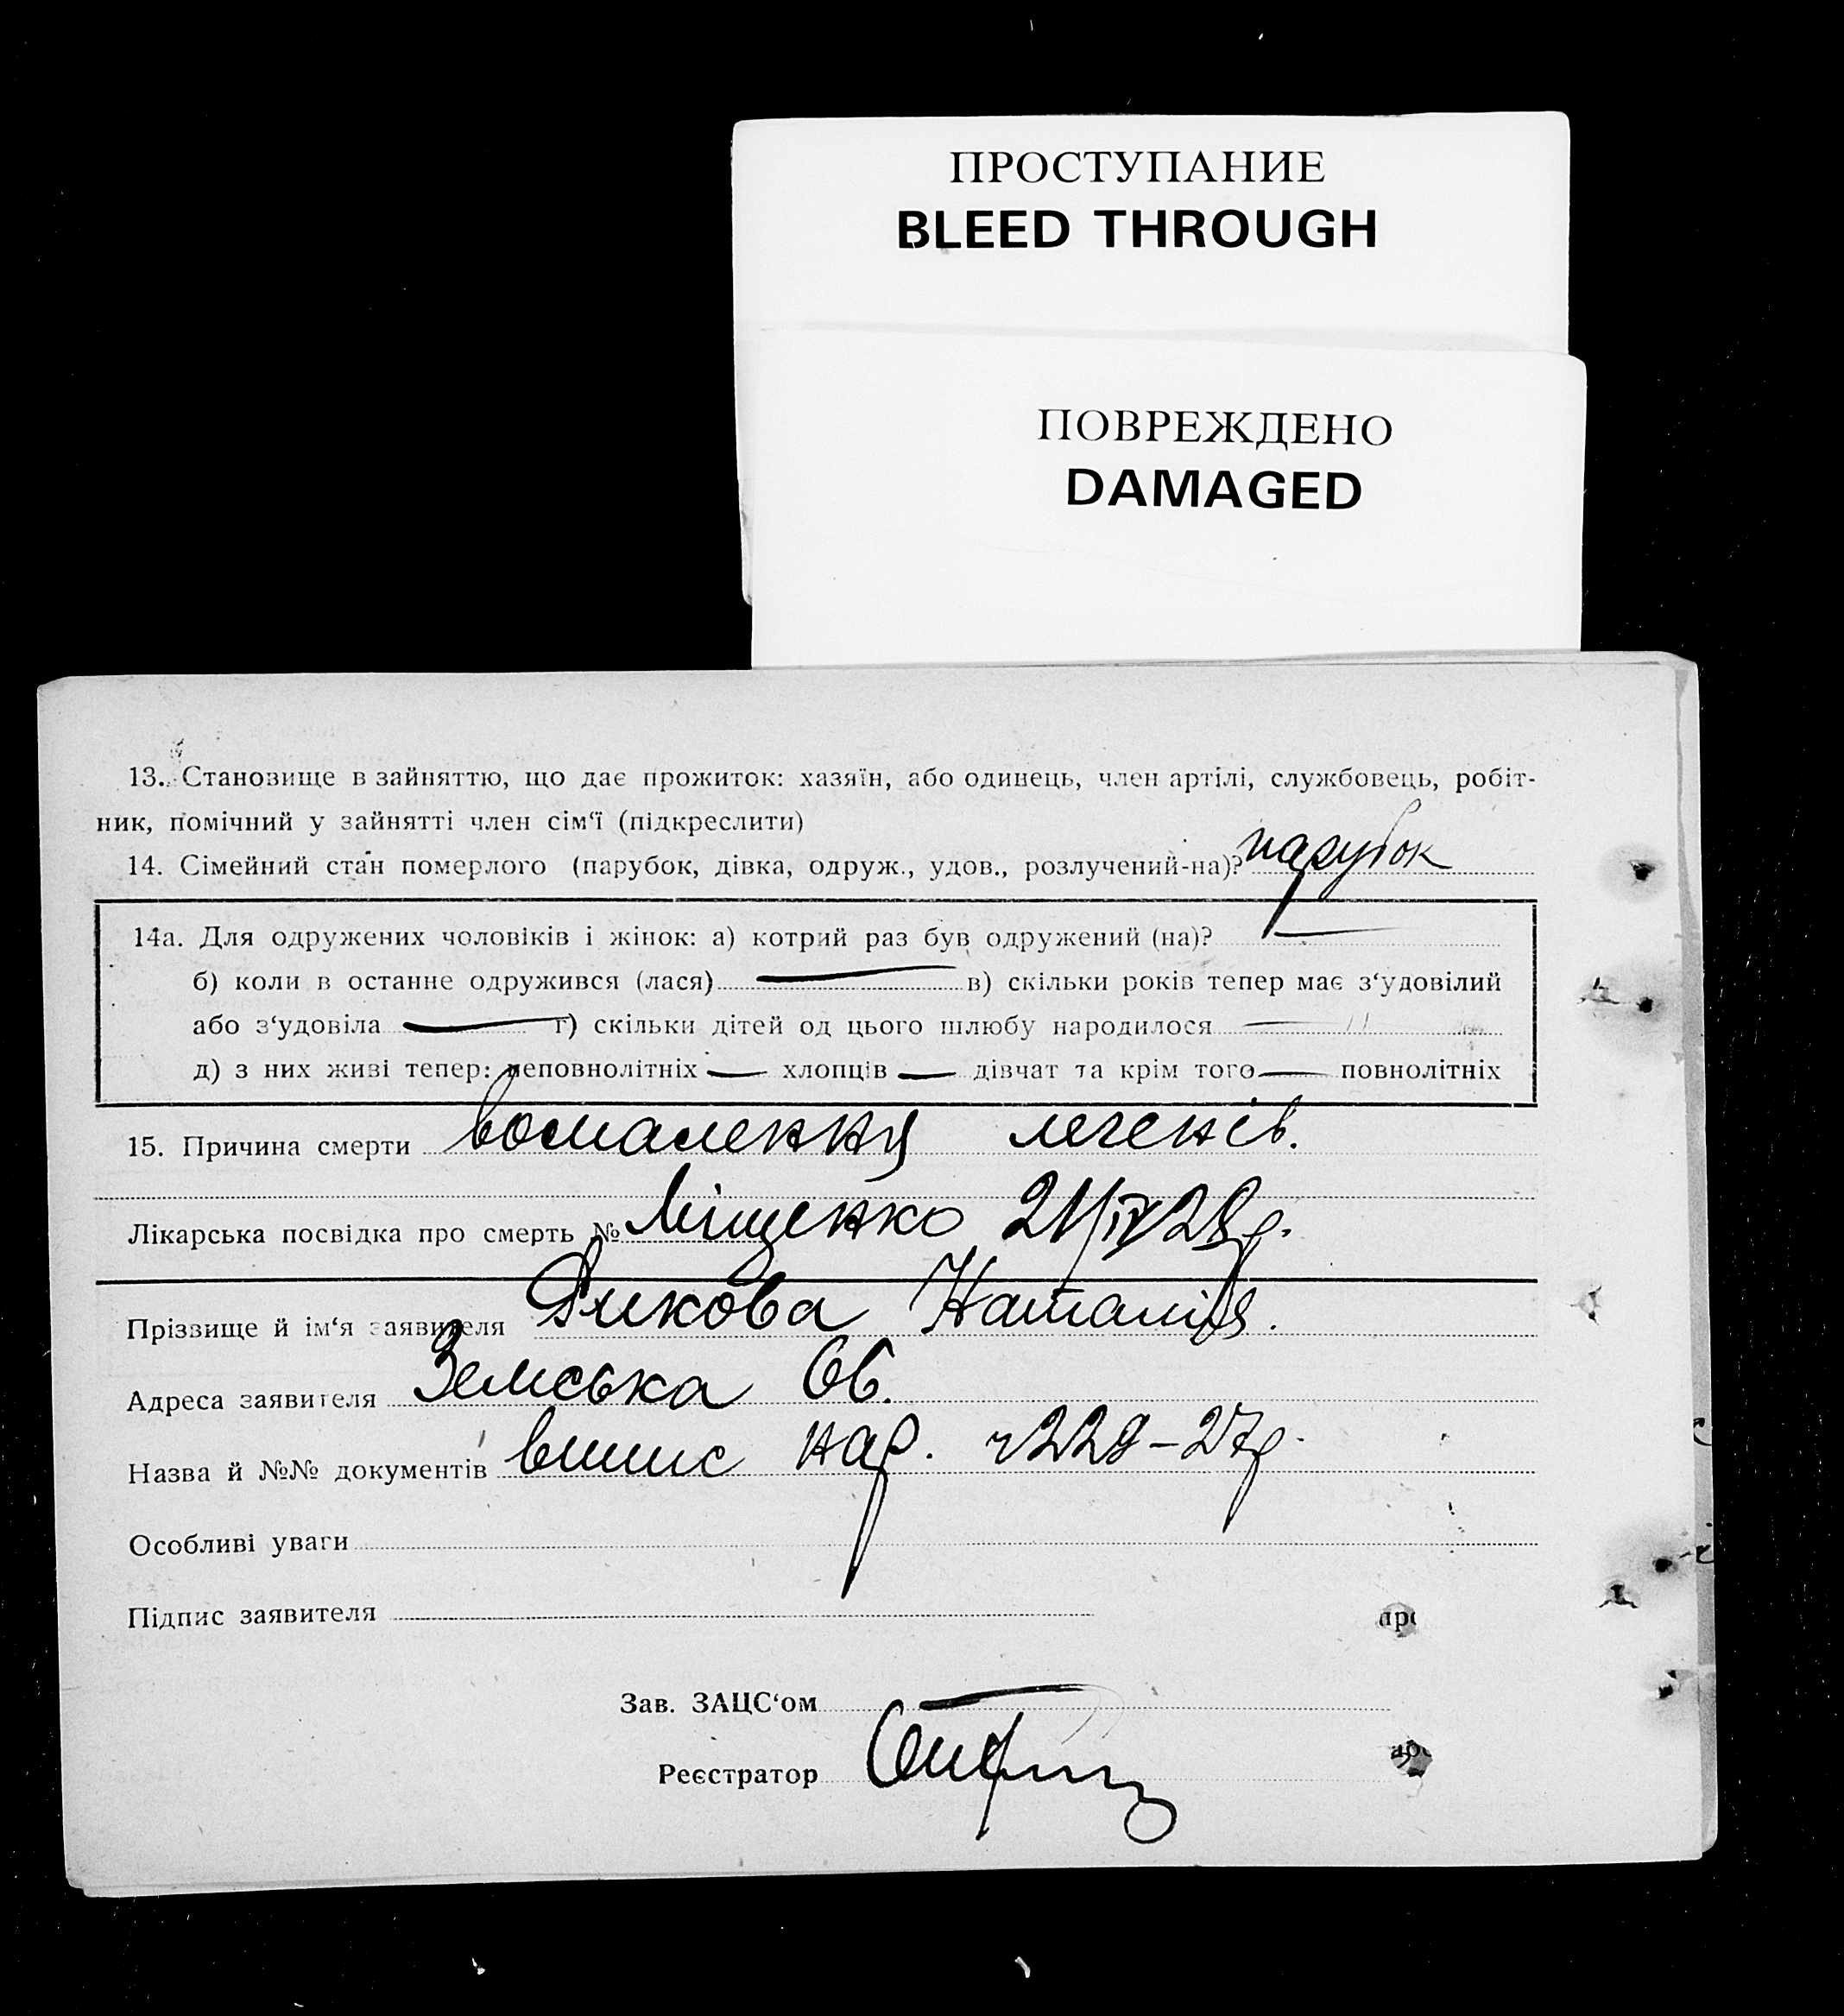 ПРОСТУПАНИЕ
BLEED THROUGH
ПОВРЕЖДЕНО
DAMAGED
13. Становище в зайняттю, що дає прожиток: хазяїн, або одинець, член артілі, службовець, робіт-
ник, помічний у зайнятті член сім‘ї (підкреслити)
14. Сімейний стан померлого (парубок, дівка, одруж., удов., розлучений-на)? парубок
14а. Для одружених чоловіків і жінок: а) котрий раз був одружений (на)? —
б) коли в останнє одружився (лася) — в) скільки років тепер має з‘удовілий
або з‘удовіла — г) скільки дітей од цього шлюбу народилося —
д) з них живі тепер: неповнолітніх — хлопців — дівчат та крім того — повнолітніх
15. Причина смерти воспалення легенів.
Лікарська посвідка про смерть № Міщенко 21/IV 28 р.
Прізвище й ім‘я заявителя Наталія.
Адреса заявителя Земська 66.
Назва й №№ документів випис нар. ч 229-27р.
Особливі уваги
Підпис заявителя
Зав. ЗАЦС‘ом —
Реєстратор